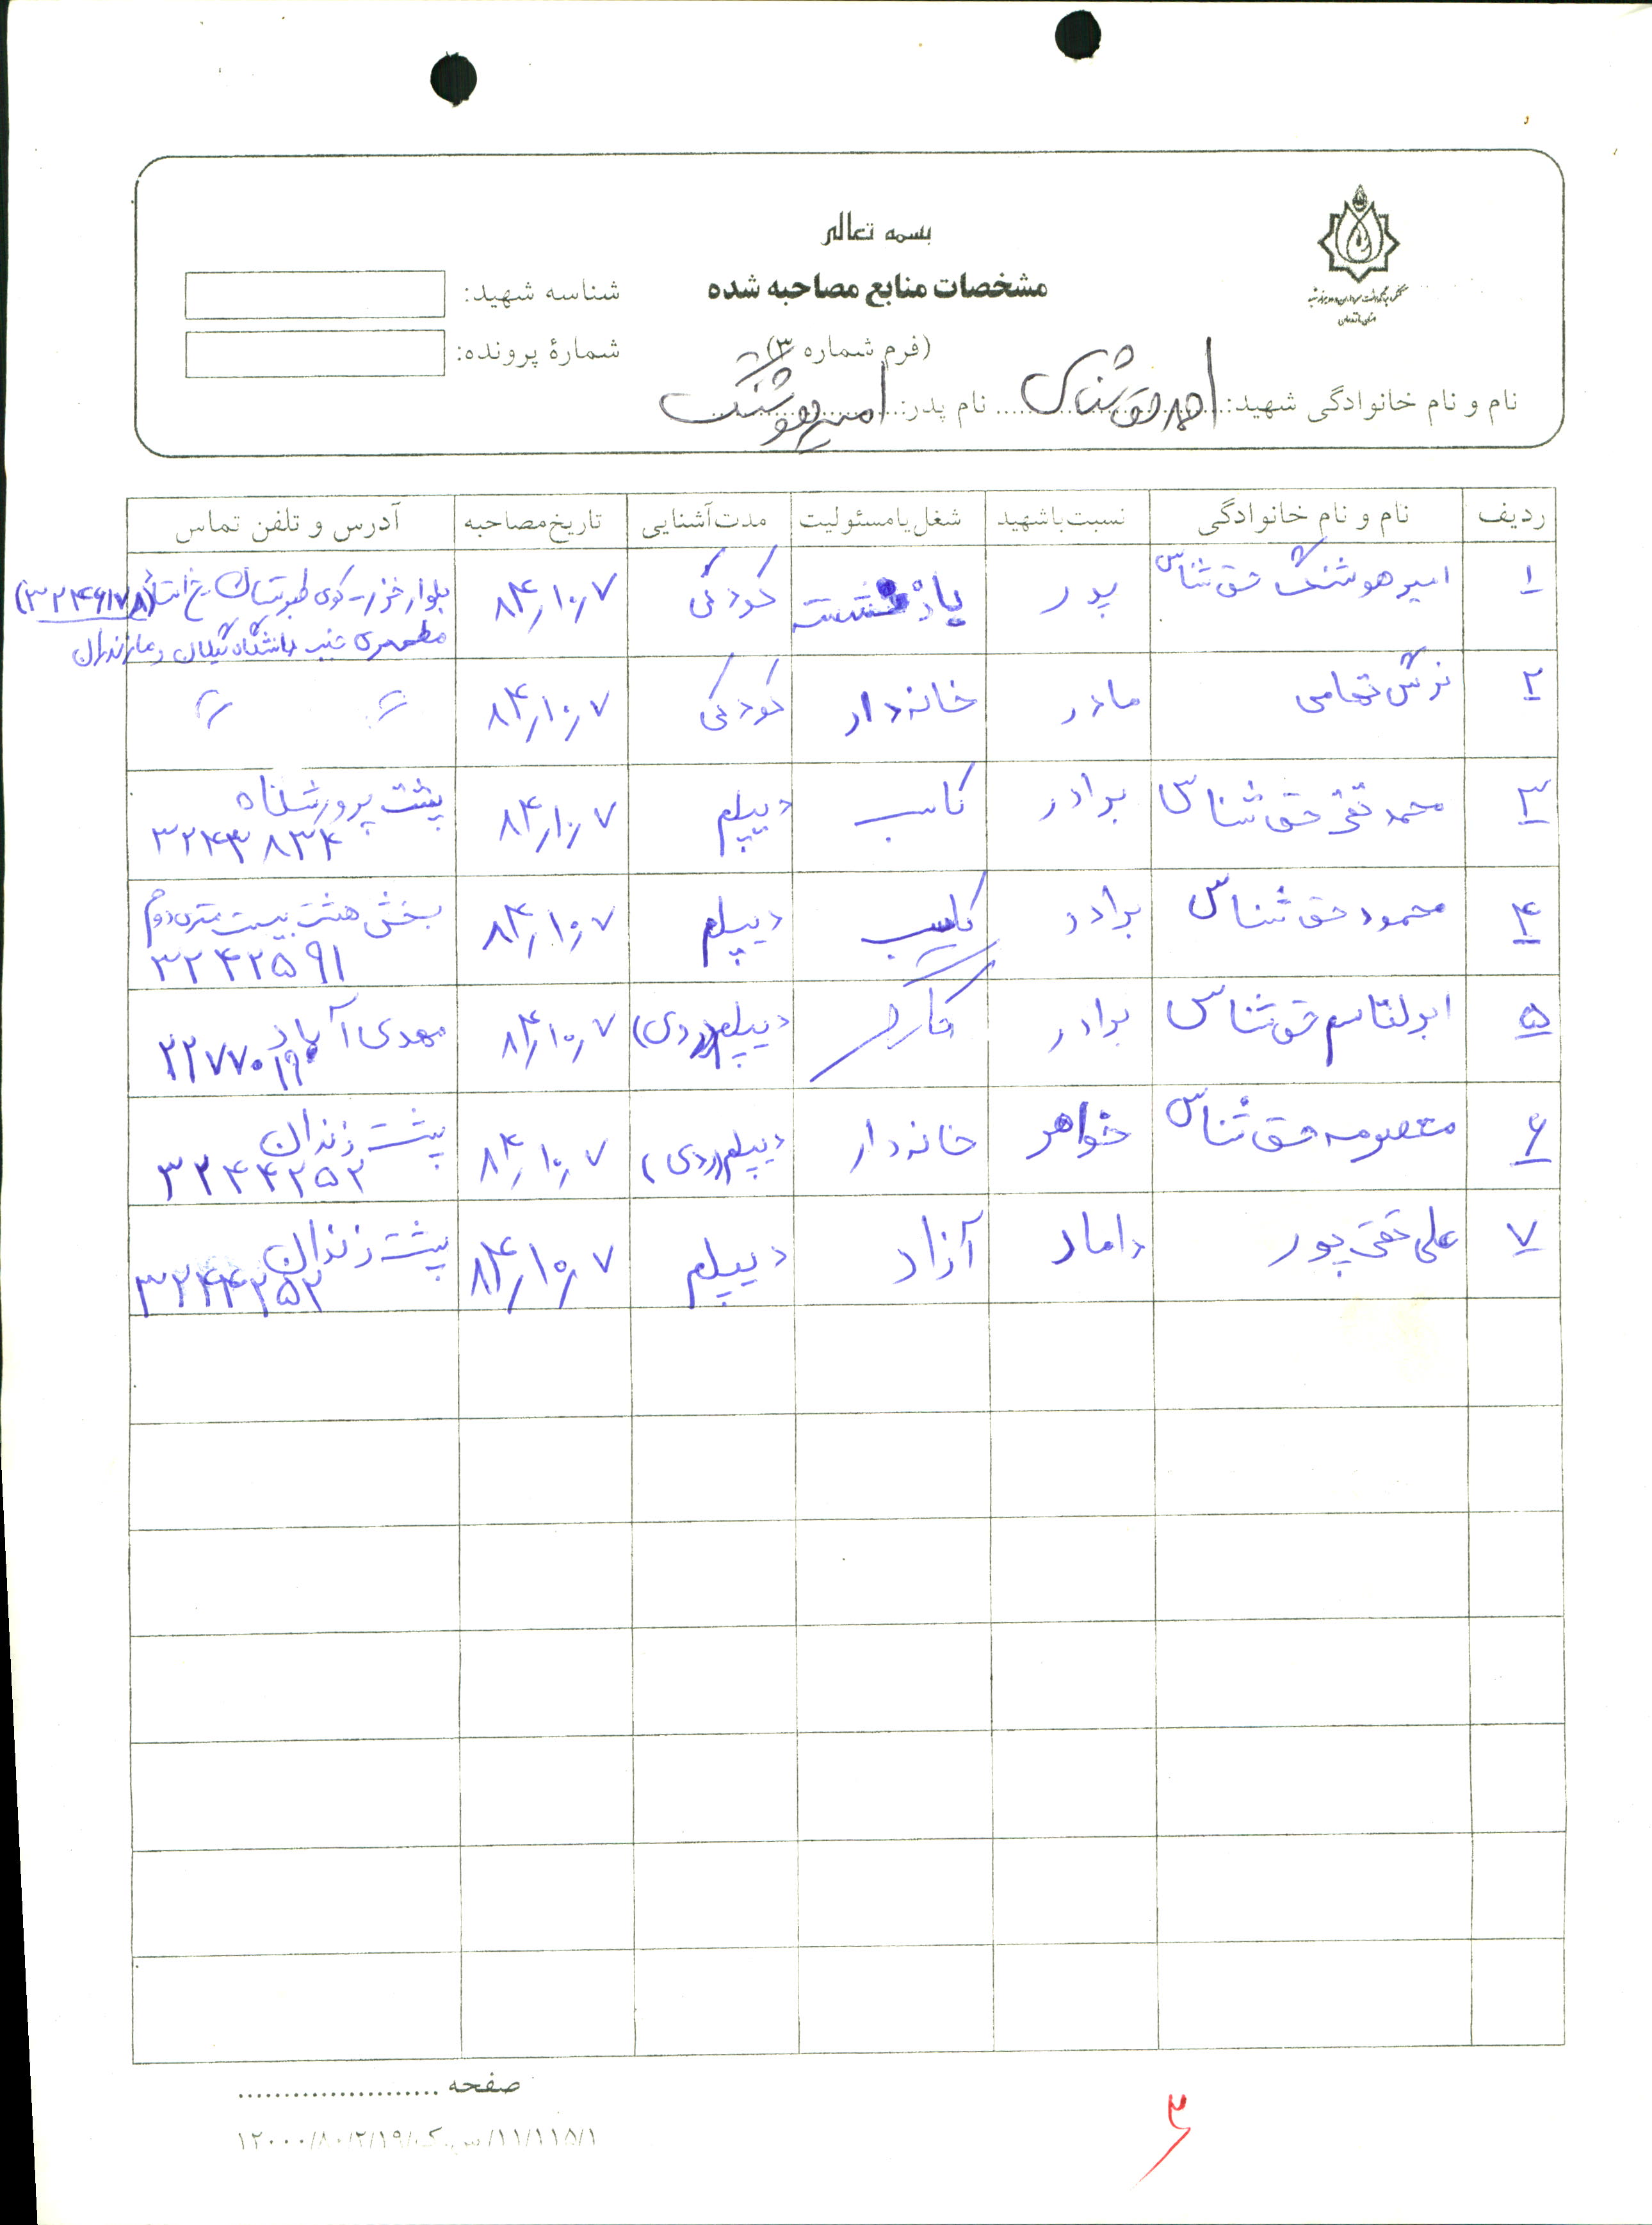 بسمه تعالی
مشخصات منابع مصاحبه شده
(فرم شماره ۳)
شناسه شهید:
شمارهٔ پرونده:
نام و نام خانوادگی شهید: احمد حق شناس نام پدر: امیرهوشنگ
ردیف نام و نام خانوادگی نسبت با شهید شغل یا مسئولیت مدت آشنایی تاریخ مصاحبه آدرس و تلفن تماس
۱ امیر هوشنگ حق شناس پدر بازنشسته کودکی ۸۴/۱۰/۷ بلوار خزر - کوی طبرستان (۳۲۴۶۱۷۸)
مطهری جنب دانشگاه گیلان و مازندران
۲ نرگس تهامی مادر خانه دار کودکی ۸۴/۱۰/۷ " "
۳ محمد تقی حق شناس برادر کاسب دیپلم ۸۴/۱۰/۷ پشت پرورشگاه
۳۲۴۳۸۳۴
۴ محمود حق شناس برادر کاسب دیپلم ۸۴/۱۰/۷ بخش هشت بیست متری دوم
۳۲۴۲۵۹۱
۵ ابولقاسم حق شناس برادر کارگر دیپلم(ردی) ۸۴/۱۰/۷ مهدی آباد
۶ معصومه حق شناس خواهر خانه دار دیپلم(ردی) ۸۴/۱۰/۷ پشت زندان
۳۲۴۴۲۵۲
۷ علی تقی پور داماد آزاد دیپلم ۸۴/۱۰/۷ پشت زندان
۳۲۴۴۲۵۲
صفحه ......................